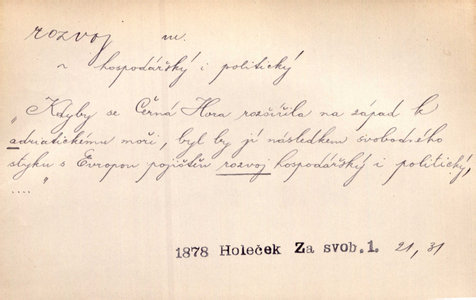 rozvoj m.
~ hospodářský i politický
„Kdyby se Černá Hora rozšířila na západ k
adriatickému moři, byl by jí následkem svobodného
styku s Evropou pojištěn rozvoj hospodářský i politický,
...."
1878 Holeček Za svob.1. 21, 31